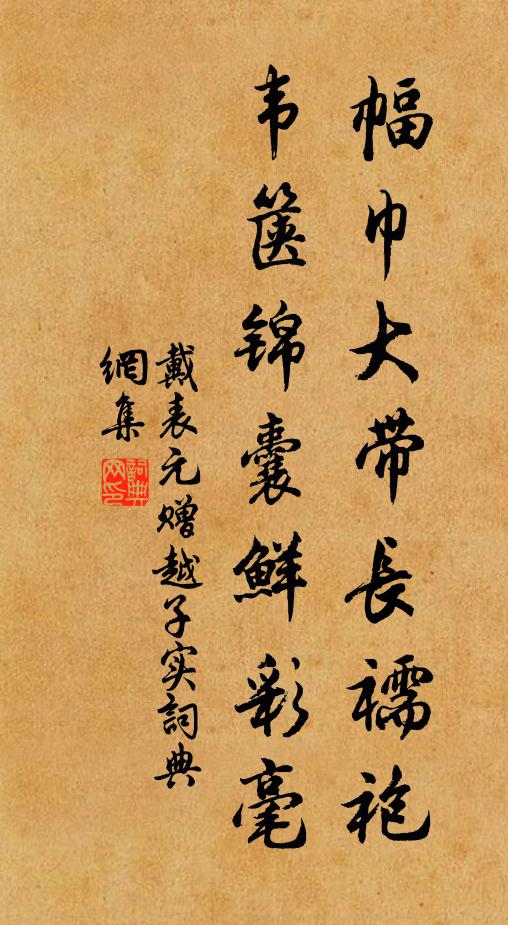 幅巾大带長襦袍
韦箧锦囊鮮彩毫
戴表元赠越子实詞典
網集
詞典网印